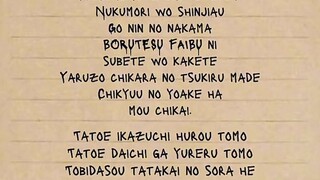 Nukumori wo Shinjiau
Go nin no nakama
Borutesu Faibu ni
Subete wo kakete
Yaruzo chikara no tsukiru made
Chikyuu no yoake ha
mou chikai.
Tatoe ikazuchi hurou tomo
Tatoe daichi ga yureru tomo
Tobidasou tatakai no sora he